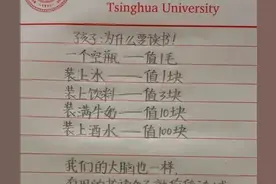 Tsinghua University
孩子:为什么要读书!
一个空瓶——值1毛
装上水——值1块
装上饮料——值3块
装满牛奶——值10块
装上酒水——值100块
我们的大脑也一样,